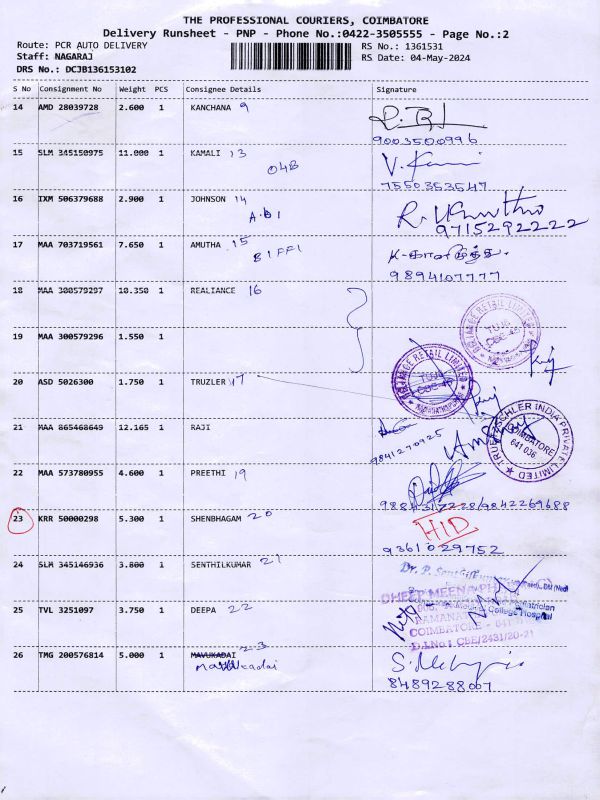 THE PROFESSIONAL COURIERS, COIMBATORE
Delivery Runsheet - PNP - Phone No.:0422-3505555 - Page No.:2
Route: PCR AUTO DELIVERY
RS No.: 1361531
Staff: NAGARAJ
RS Date: 04-May-2024
DRS No.: DCJB136153102
S No Consignment No Weight PCS Consignee Details Signature
14 AMD 28039728 2.600 1 KANCHANA 9
9003500996
15 SLM 345150975 11.000 1 KAMALI 13
04B
7550353547
16 IXM 506379688 2.900 1 JOHNSON 14
A.B1
9715292222
17 MAA 703719561 7.650 1 AMUTHA 15
B1FF1
9894107777
18 MAA 300579297 10.350 1 REALIANCE 16
19 MAA 300579296 1.550 1
RELIANCE RETAIL LIMITED
TUJ6
CBE-45
RELIANCE RETAIL LIMITED
TUJ6
CBE-45
20 ASD 5026300 1.750 1 TRUZLER 17
TRUETZSCHLER INDIA PRIVATE LIMITED
COIMBATORE
641 036
21 MAA 865468649 12.165 1 RAJI
9841270925
22 MAA 573780955 4.600 1 PREETHI 19
9884317228/9842269688
23 KRR 50000298 5.300 1 SHENBHAGAM 20
HID
9361029752
24 SLM 345146936 3.800 1 SENTHILKUMAR 21
25 TVL 3251097 3.750 1 DEEPA 22
COIMBATORE - 641
D.L.No: CBE/2431/20-21
26 TMG 200576814 5.000 1 MAVUKADAI 23
8489288007